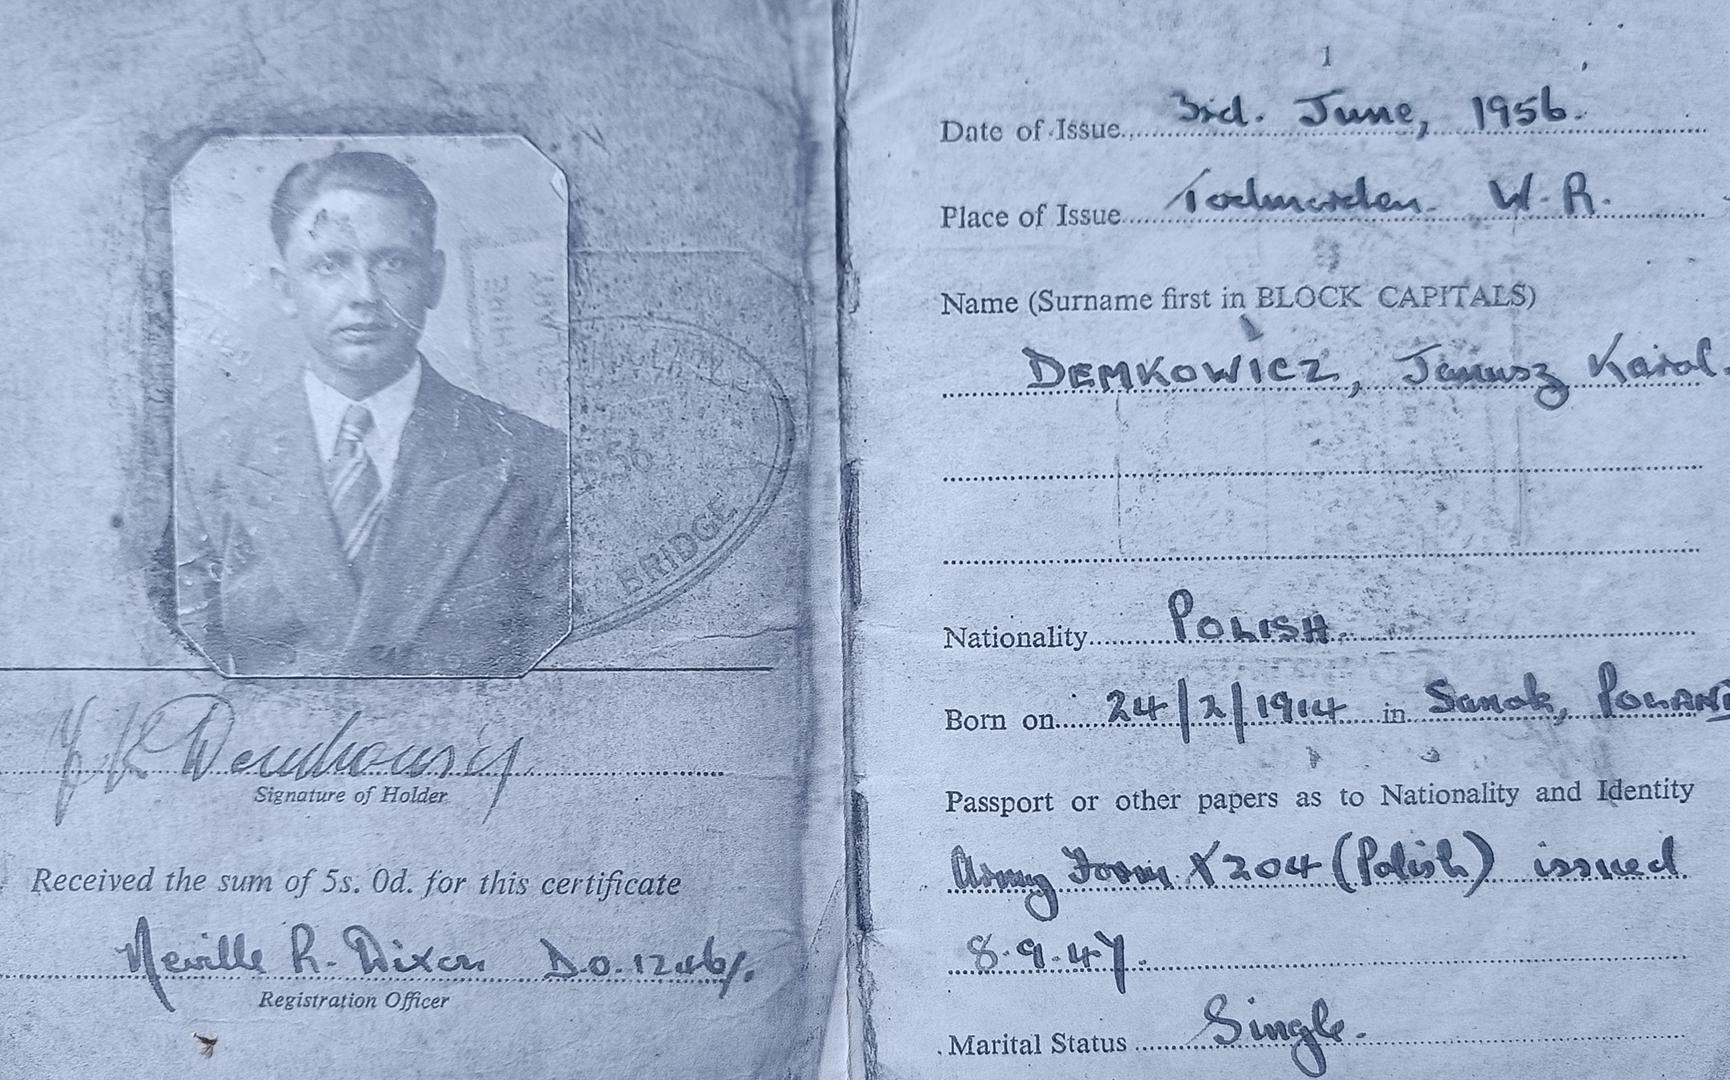 56
BRIDGE
J K Demkowicz
Signature of Holder
Received the sum of 5s. 0d. for this certificate
Neville R. Dixon D.O.
Registration Officer
1
Date of Issue 3rd. June, 1956.
Place of Issue Todmorden. W.R.
Name (Surname first in BLOCK CAPITALS)
DEMKOWICZ, Janusz Karol.
Nationality POLISH.
Born on 24/2/1914 in Sanok, POLAND
Passport or other papers as to Nationality and Identity
Army Form X204 (Polish) issued
8.9.47.
Marital Status Single.